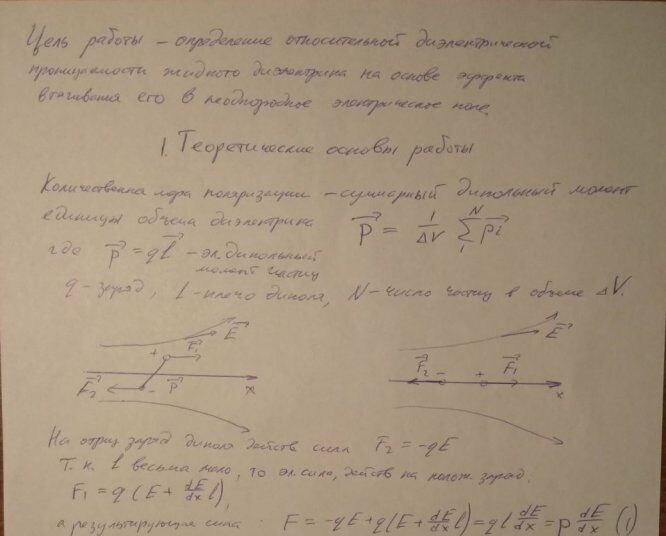 Цель работы – определение относительной диэлектрической
проницаемости жидкого диэлектрика на основе эффекта
втягивания его в неоднородное электрическое поле.
1. Теоретические основы работы
Количественна мера поляризации – суммарный дипольный момент
единицы объема диэлектрина P⃗ = 1/ΔV Σ₁ᴺ p⃗i
где p⃗ = ql⃗ – эл. дипольный
момент частиц
q – заряд, l – плечо диполя, N – число частиц в объеме ΔV.
E⃗ E⃗
+ F⃗₁ F⃗₂ – + F⃗₁
F⃗₂ – p⃗ x x
На отриц заряд диполя действ сила F₂ = –qE
Т. к. l весьма мало, то эл. сила, действ на полож. заряд:
F₁ = q (E + dE/dx l),
а результирующая сила: F = –qE + q(E + dE/dx l) = ql dE/dx = p dE/dx (1)